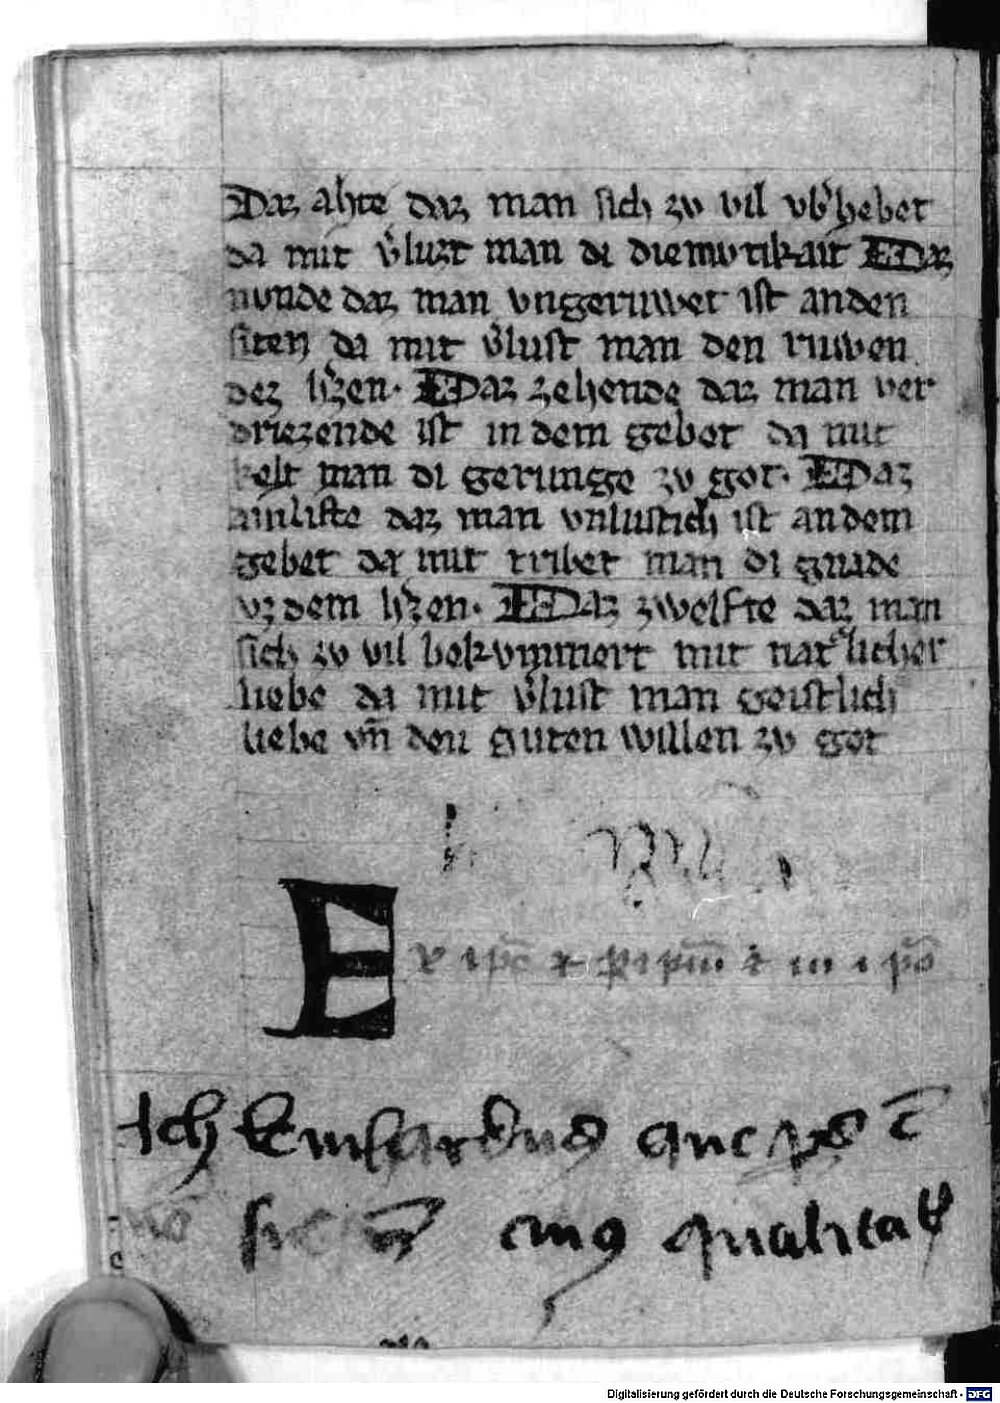 Daz ahte daz man sich zv vil vb͛hebet
da mit v͛luzt man di diemvtikait Daz
nvnde daz man vngeruwet ist an den
siten da mit v͛lust man den ruwen
dez h͛zen · Daz zehende daz man ver
driezende ist in dem gebet da mit
kelt man di gerunge zv got · Daz
ainliftte daz man vnlustich ist an dem
gebet da mit tribet man di gnade
vz dem h͛zen · Daz zwelfte daz man
sich zv vil bekvmmert mit nat͛licher
liebe da mit v͛lust man geistlich
liebe vn̄ den guten willen zv got
E
in
Ich
que
qualitas
Digitalisierung gefördert durch die Deutsche Forschungsgemeinschaft - DFG